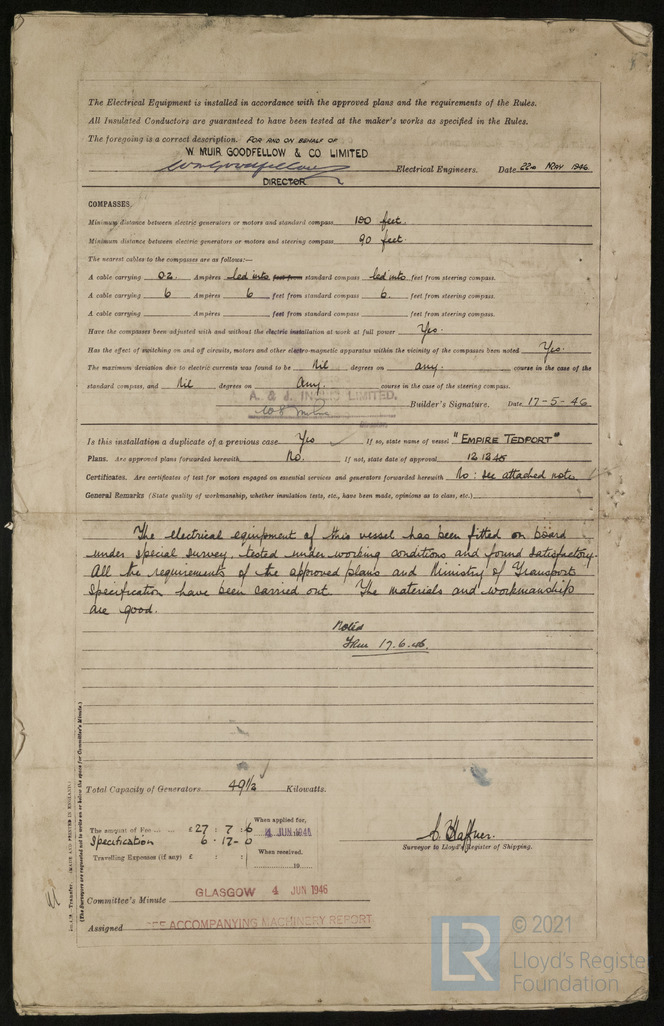 The Electrical Equipment is installed in accordance with the approved plans and the requirements of the Rules.
All Insulated Conductors are guaranteed to have been tested at the maker's works as specified in the Rules.
The foregoing is a correct description. FOR AND ON BEHALF OF
W. MUIR GOODFELLOW & CO LIMITED
Wm Goodfellow Electrical Engineers. Date 22nd MAY 1946
DIRECTOR
COMPASSES.
Minimum distance between electric generators or motors and standard compass 100 feet.
Minimum distance between electric generators or motors and steering compass 90 feet.
The nearest cables to the compasses are as follows:—
A cable carrying 02 Ampères led into feet from standard compass led into feet from steering compass.
A cable carrying 6 Ampères 6 feet from standard compass 6. feet from steering compass.
A cable carrying Ampères feet from standard compass feet from steering compass.
Have the compasses been adjusted with and without the electric installation at work at full power Yes.
Has the effect of switching on and off circuits, motors and other electro-magnetic apparatus within the vicinity of the compasses been noted Yes.
The maximum deviation due to electric currents was found to be Nil degrees on any. course in the case of the
standard compass, and Nil degrees on Any. course in the case of the steering compass.
A. & J. INGLIS LIMITED,
Builder's Signature. Date 17-5-46
Is this installation a duplicate of a previous case Yes If so, state name of vessel "EMPIRE TEDPORT"
Plans. Are approved plans forwarded herewith No. If not, state date of approval 12.12.45
Certificates. Are certificates of test for motors engaged on essential services and generators forwarded herewith No: see attached note
General Remarks (State quality of workmanship, whether insulation tests, etc., have been made, opinions as to class, etc.)
The electrical equipment of this vessel has been fitted on board
under special survey, tested under working conditions and found satisfactory.
All the requirements of the approved plans and Ministry of Transport
Specification have been carried out. The materials and workmanship
are good.
Noted
17.6.46.
Total Capacity of Generators 49½ Kilowatts.
The amount of Fee ... ... £ 27 : 7 : 6 When applied for,
4 JUN 1946
Specification 6 - 17 - 0
When received.
Travelling Expenses (if any) £ : : 19
Surveyor to Lloyd's Register of Shipping.
Committee's Minute GLASGOW 4 JUN 1946
Assigned SEE ACCOMPANYING MACHINERY REPORT.
(MADE AND PRINTED IN ENGLAND.)
(The Surveyors are requested not to write on or below the space for Committee's Minute.)
LR
© 2021
Lloyd's Register
Foundation